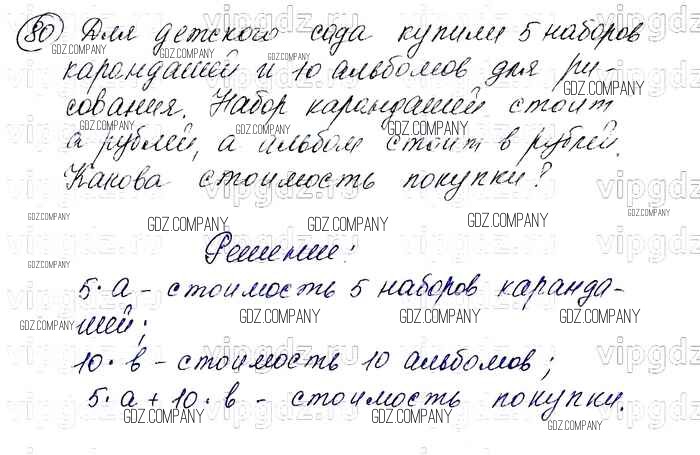 80 Для детского сада купили 5 наборов
карандашей и 10 альбомов для ри-
сования. Набор карандашей стоит
а рублей, а альбом стоит в рублей.
Какова стоимость покупки?
Решение:
5·а – стоимость 5 наборов каранда-
шей;
10·в – стоимость 10 альбомов;
5·а + 10·в – стоимость покупки.
GDZ.COMPANY
vipgdz.ru